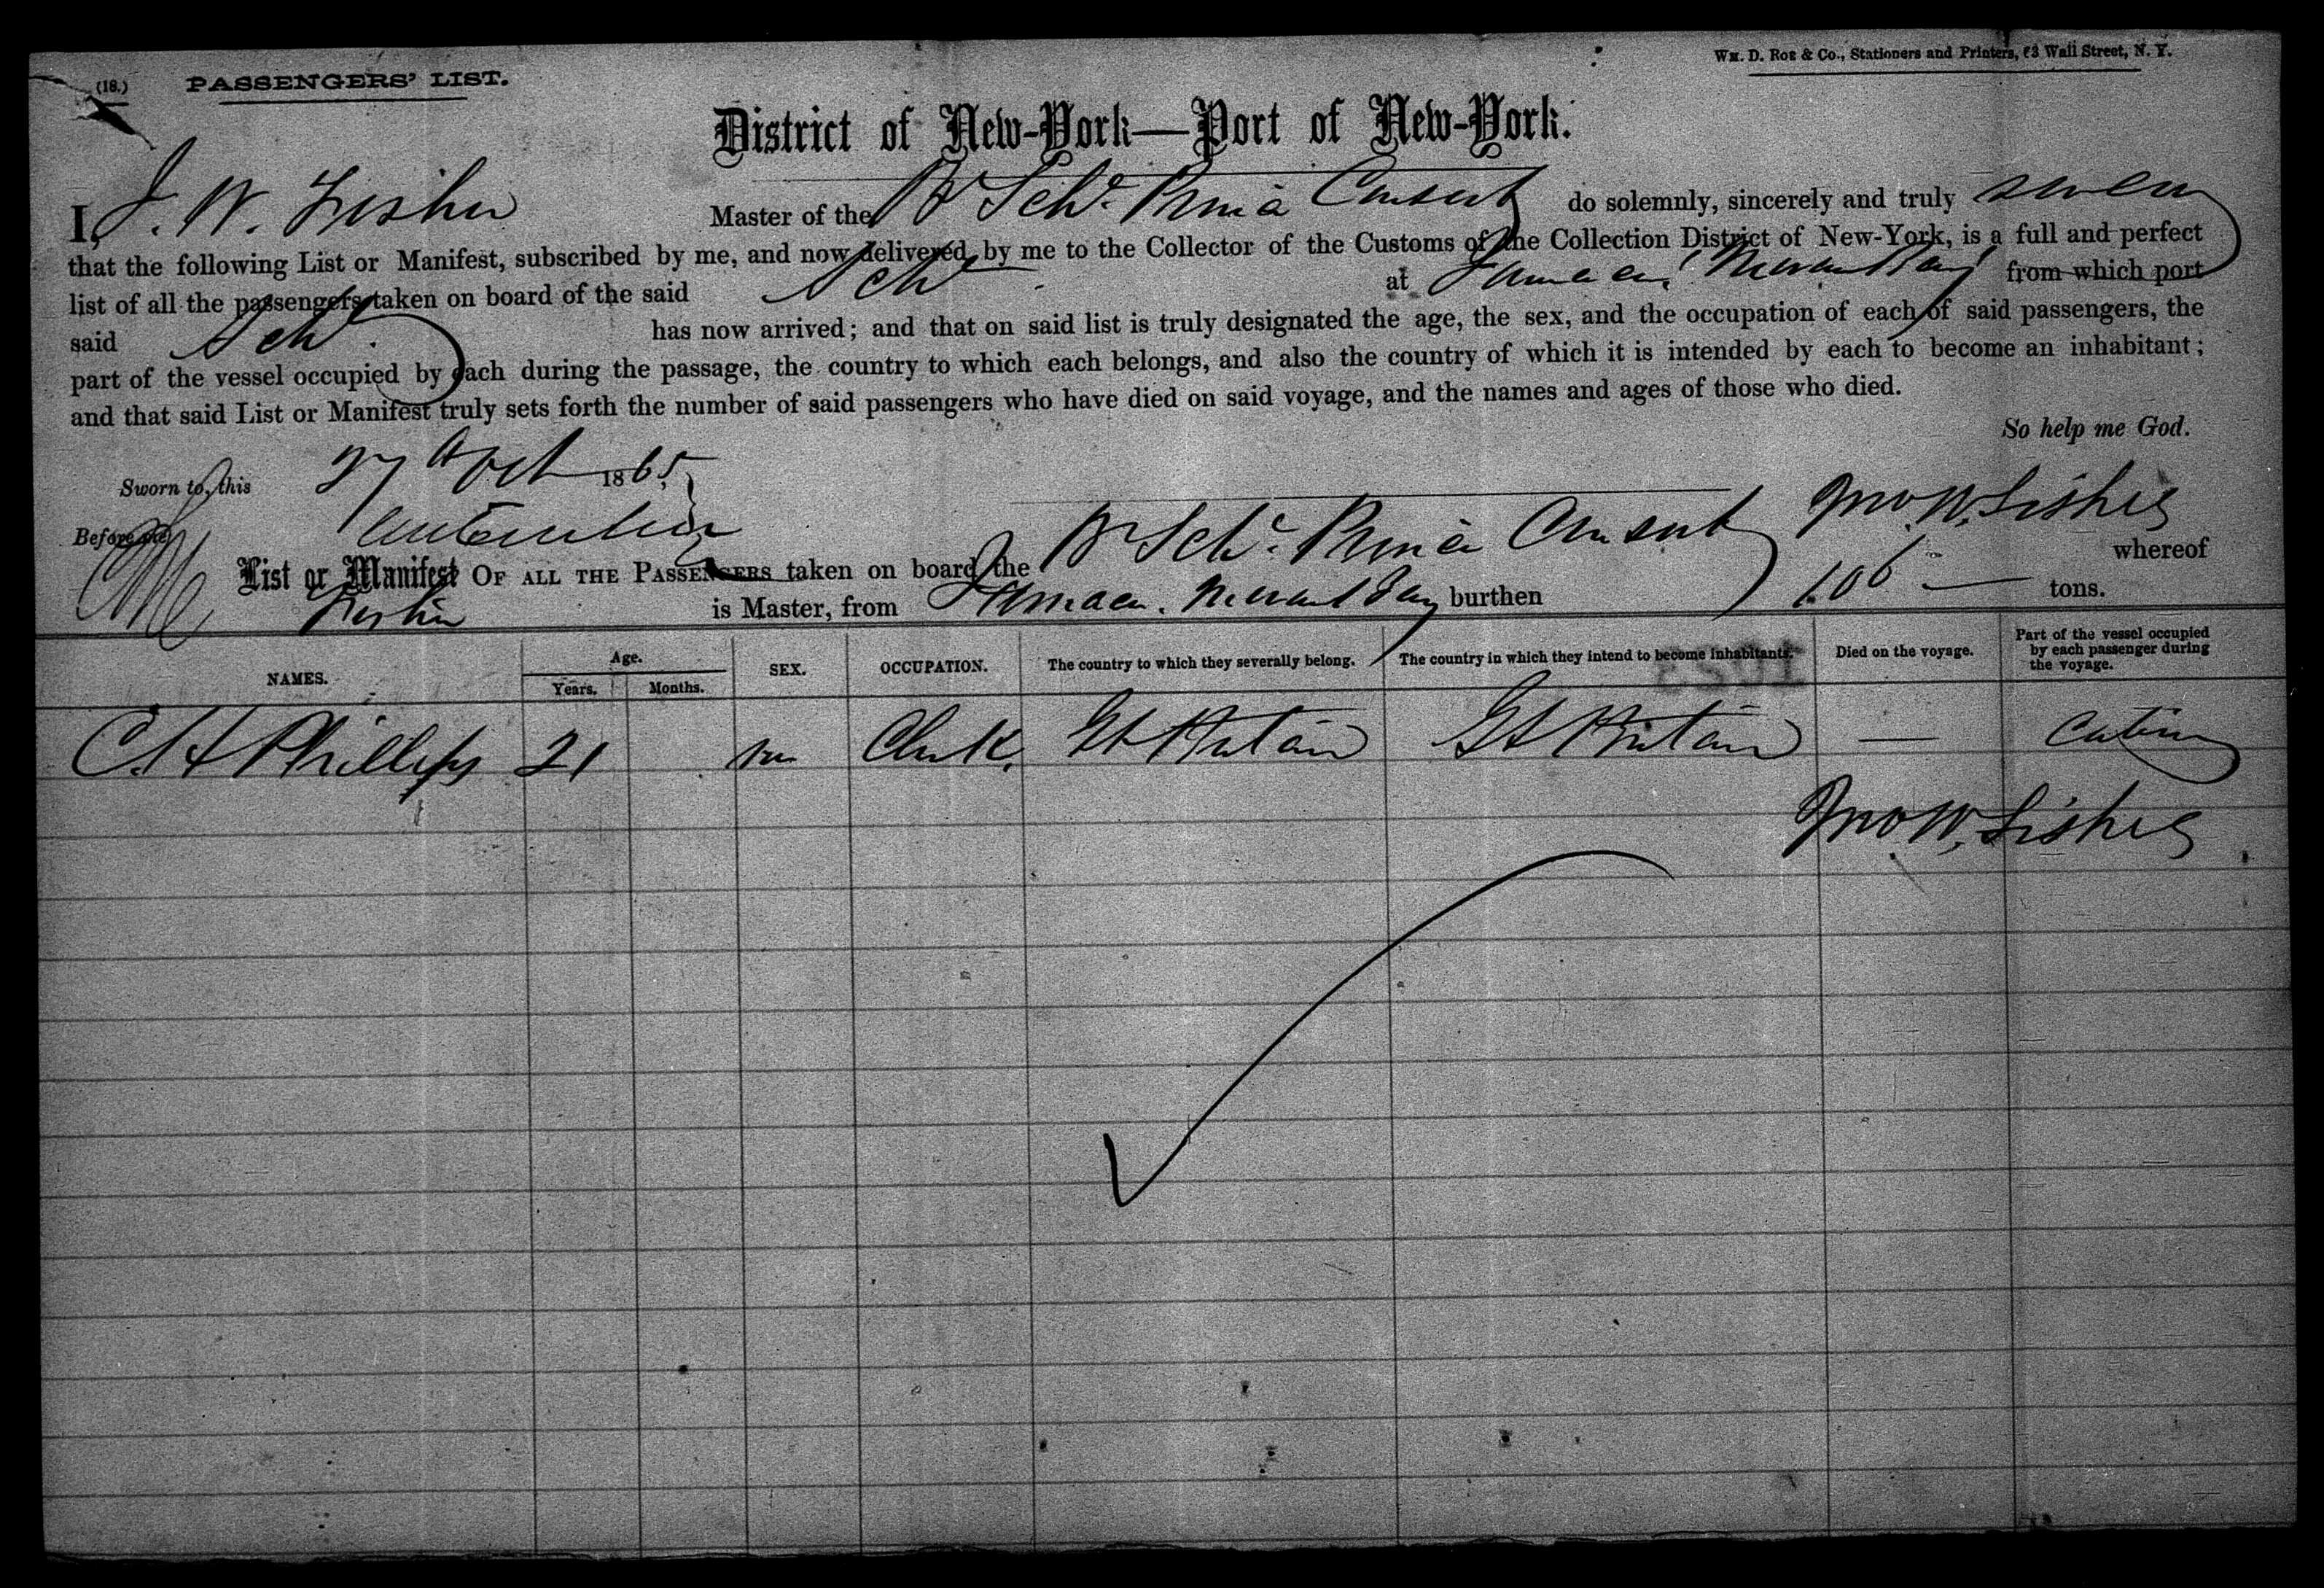 (18.) PASSENGERS' LIST.
WM. D. ROE & CO., Stationers and Printers, 63 Wall Street, N. Y.
District of New-York—Port of New-York.
I, J. W. Fisher Master of the Br Schr. Prince Consort do solemnly, sincerely and truly swear
that the following List or Manifest, subscribed by me, and now delivered by me to the Collector of the Customs of the Collection District of New-York, is a full and perfect
list of all the passengers taken on board of the said Schr at Jamaica, Morant Bay from which port
said Schr has now arrived; and that on said list is truly designated the age, the sex, and the occupation of each of said passengers, the
part of the vessel occupied by each during the passage, the country to which each belongs, and also the country of which it is intended by each to become an inhabitant;
and that said List or Manifest truly sets forth the number of said passengers who have died on said voyage, and the names and ages of those who died.
So help me God.
Sworn to, this 27th Oct 1865
Jno W. Fisher
Before me
List or Manifest OF ALL THE PASSENGERS taken on board the Br Schr. Prince Consort whereof
Fisher is Master, from Jamaica. Morant Bay burthen 106 tons.
NAMES. Age. Years. Months. SEX. OCCUPATION. The country to which they severally belong. The country in which they intend to become inhabitants. Died on the voyage. Part of the vessel occupied by each passenger during the voyage.
C H Phillips 21 m Clerk. Gt Britain Gt Britain — Cabin
Jno W. Fisher